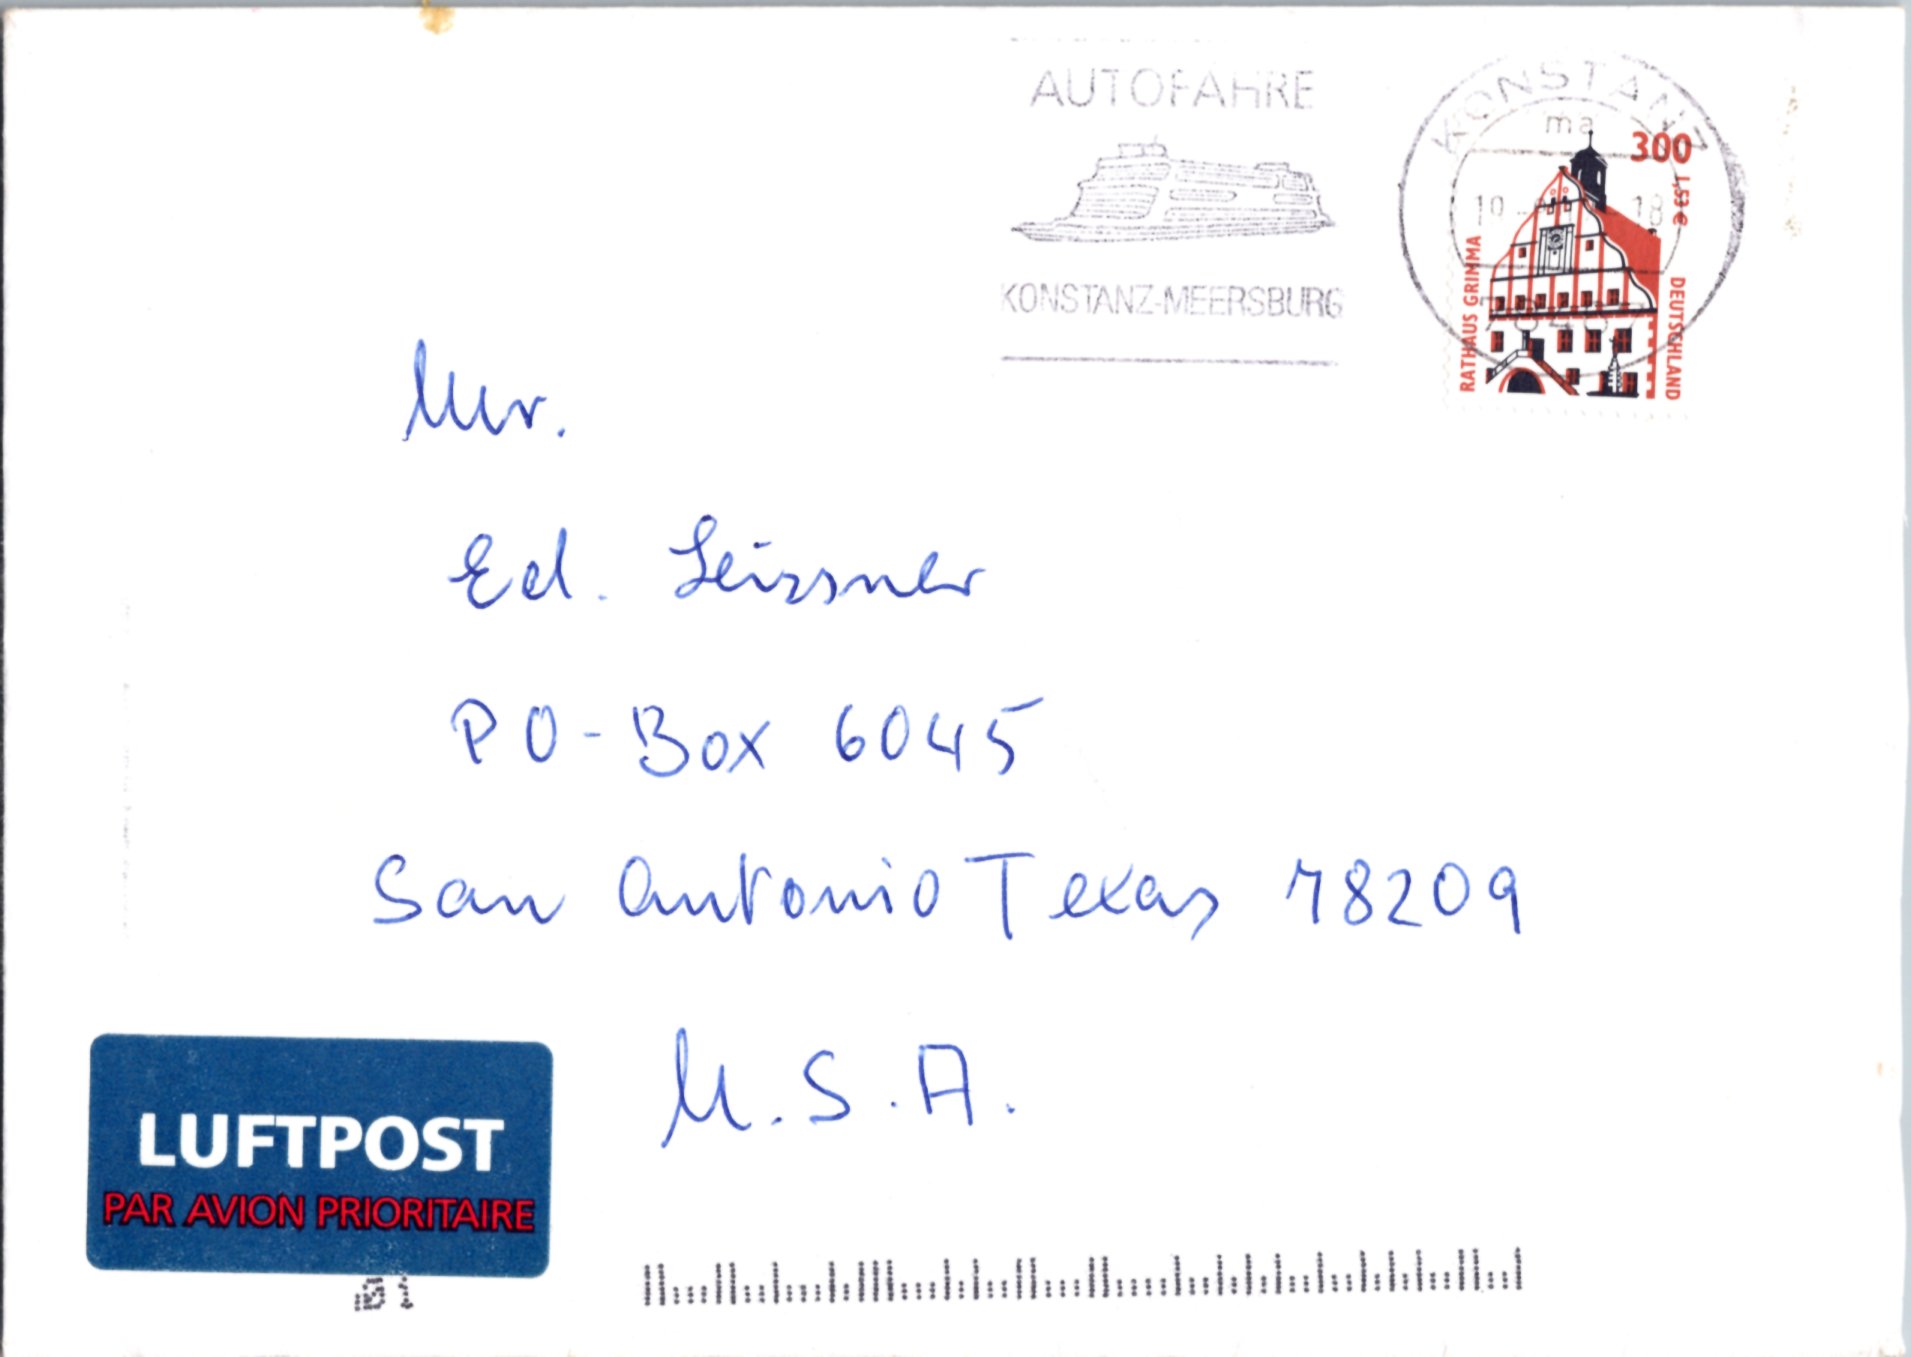 AUTOFÄHRE
KONSTANZ-MEERSBURG
KONSTANZ
ma
18
300
1,53 €
RATHAUS GRIMMA
DEUTSCHLAND
Mr.
Ed. Leissner
PO-Box 6045
San Antonio Texas 78209
U.S.A.
LUFTPOST
PAR AVION PRIORITAIRE